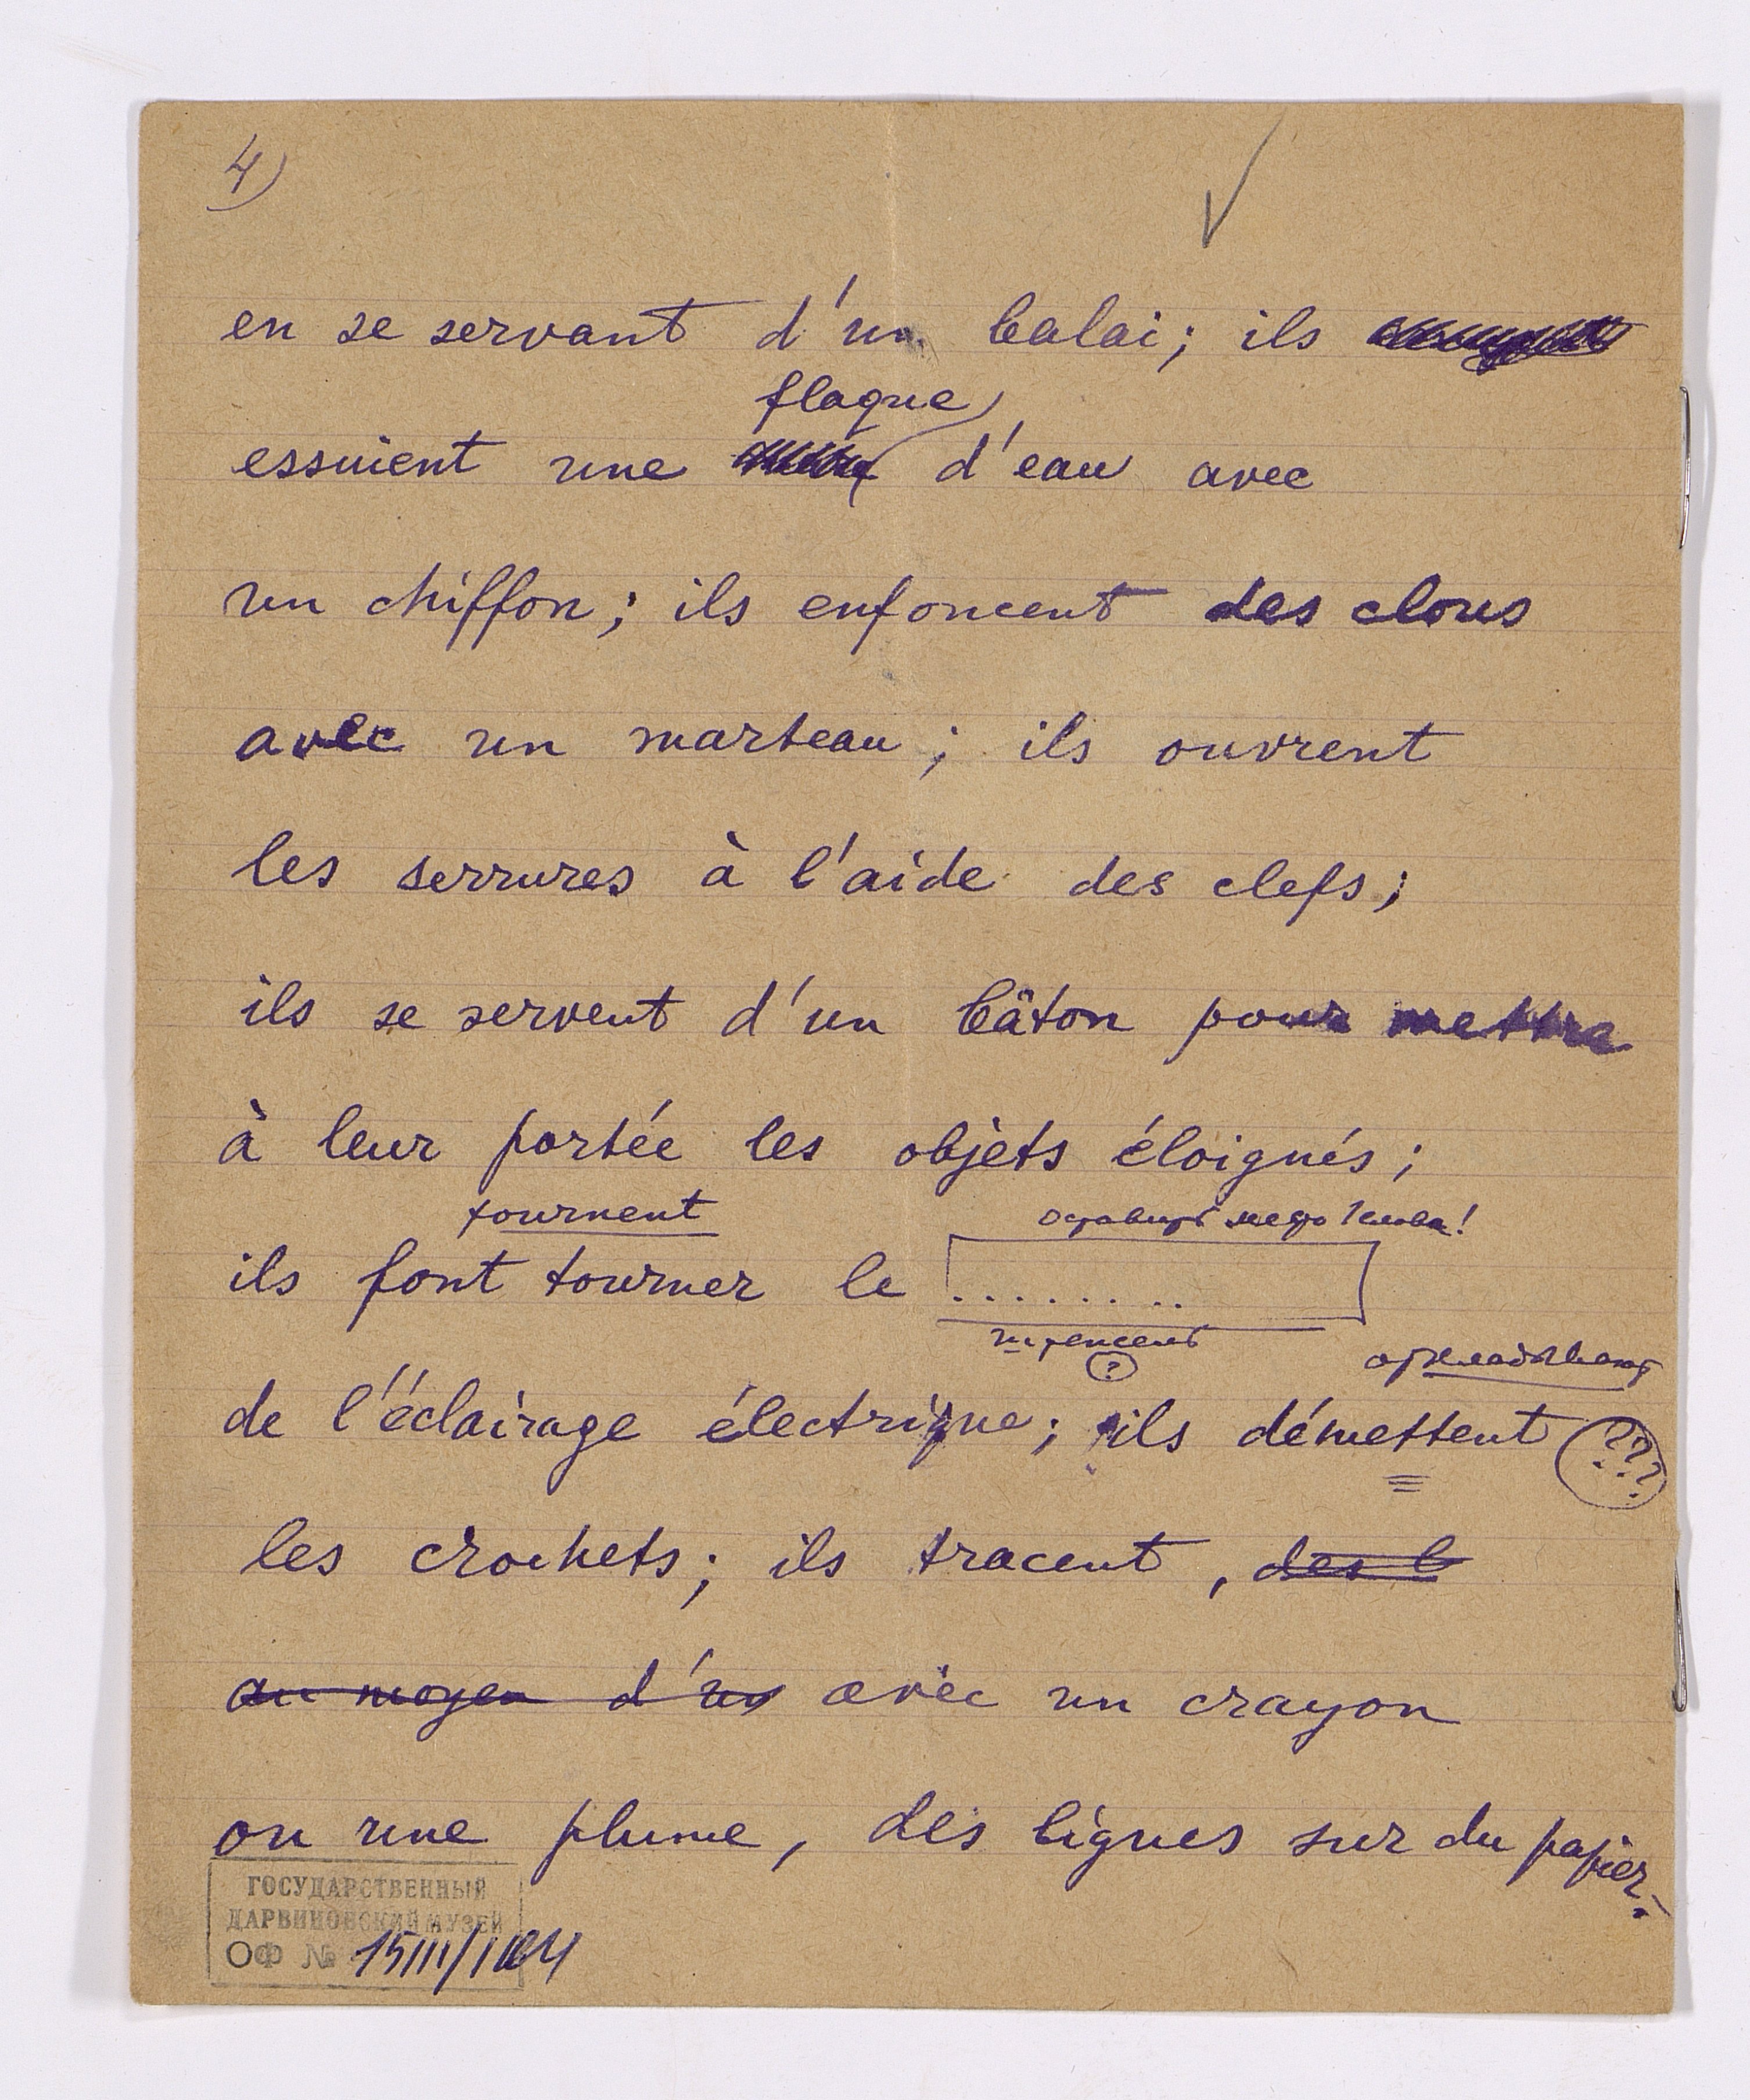 4)
en se servant d'un balai; ils
flaque
essuient une d'eau avec
un chiffon; ils enfoncent des clous
avec un marteau; ils ouvrent
les serrures à l'aide des clefs;
ils se servent d'un bâton pour mettre
à leur portée les objets éloignés;
tournent
оставить место 1 слова!
ils font tourner le ........
(?)
de l'éclairage électrique; ils démettent ???
les crochets; ils tracent, des l
au moyen d'un avec un crayon
ou une plume, des lignes sur du papier.
ГОСУДАРСТВЕННЫЙ
ДАРВИНОВСКИЙ МУЗЕЙ
ОФ №